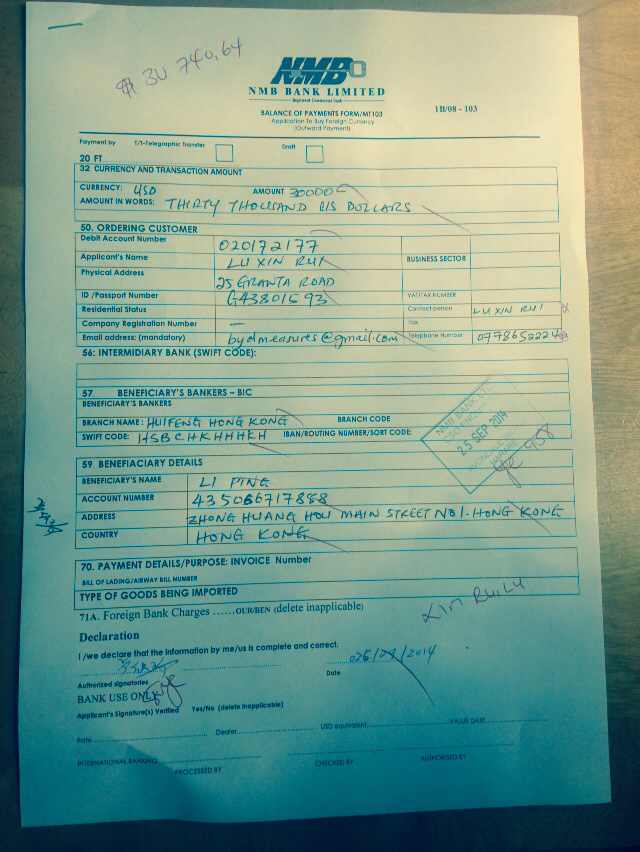 $ 30 740,64
NMB
NMB BANK LIMITED
Registered Commercial Bank
BALANCE OF PAYMENTS FORM/MT103
Application To Buy Foreign Currency
(Outward Payment)
1B/08 - 103
Payment by T/T-Telegraphic Transfer Draft
20 FT
32 CURRENCY AND TRANSACTION AMOUNT
CURRENCY: USD AMOUNT 30000
AMOUNT IN WORDS: THIRTY THOUSAND U/S DOLLARS
50. ORDERING CUSTOMER
Debit Account Number 020172177
Applicant's Name LU XIN RUI BUSINESS SECTOR
Physical Address 25 GRANTA ROAD
ID /Passport Number G43801693 VAT/TAX NUMBER
Residential Status Contact person LU XIN RUI
Company Registration Number — Fax
Email address: (mandatory) bydmeasures@gmail.com Telephone Number 0778652224
56: INTERMIDIARY BANK (SWIFT CODE):
57 BENEFICIARY'S BANKERS – BIC
BENEFICIARY'S BANKERS
BRANCH NAME: HUIFENG HONG KONG BRANCH CODE
SWIFT CODE: HSBCHKHHHKH IBAN/ROUTING NUMBER/SORT CODE:
NMB BANK
25 SEP 2014
958
59 BENEFIACIARY DETAILS
BENEFICIARY'S NAME LI PING
ACCOUNT NUMBER 435066717888
ADDRESS ZHONG HUANG HOU MAIN STREET NO 1. HONG KONG
COUNTRY HONG KONG
70. PAYMENT DETAILS/PURPOSE: INVOICE Number
BILL OF LADING/AIRWAY BILL NUMBER
TYPE OF GOODS BEING IMPORTED
71A. Foreign Bank Charges ......OUR/BEN (delete inapplicable)
XIN RUI LU
Declaration
I /we declare that the information by me/us is complete and correct.
Authorized signatories Date
BANK USE ONLY
Applicant's Signature(s) Verified Yes/No (delete inapplicable)
Rate Dealer USD equivalent VALUE DATE
INTERNATIONAL BANKING PROCESSED BY CHECKED BY AUTHORISED BY